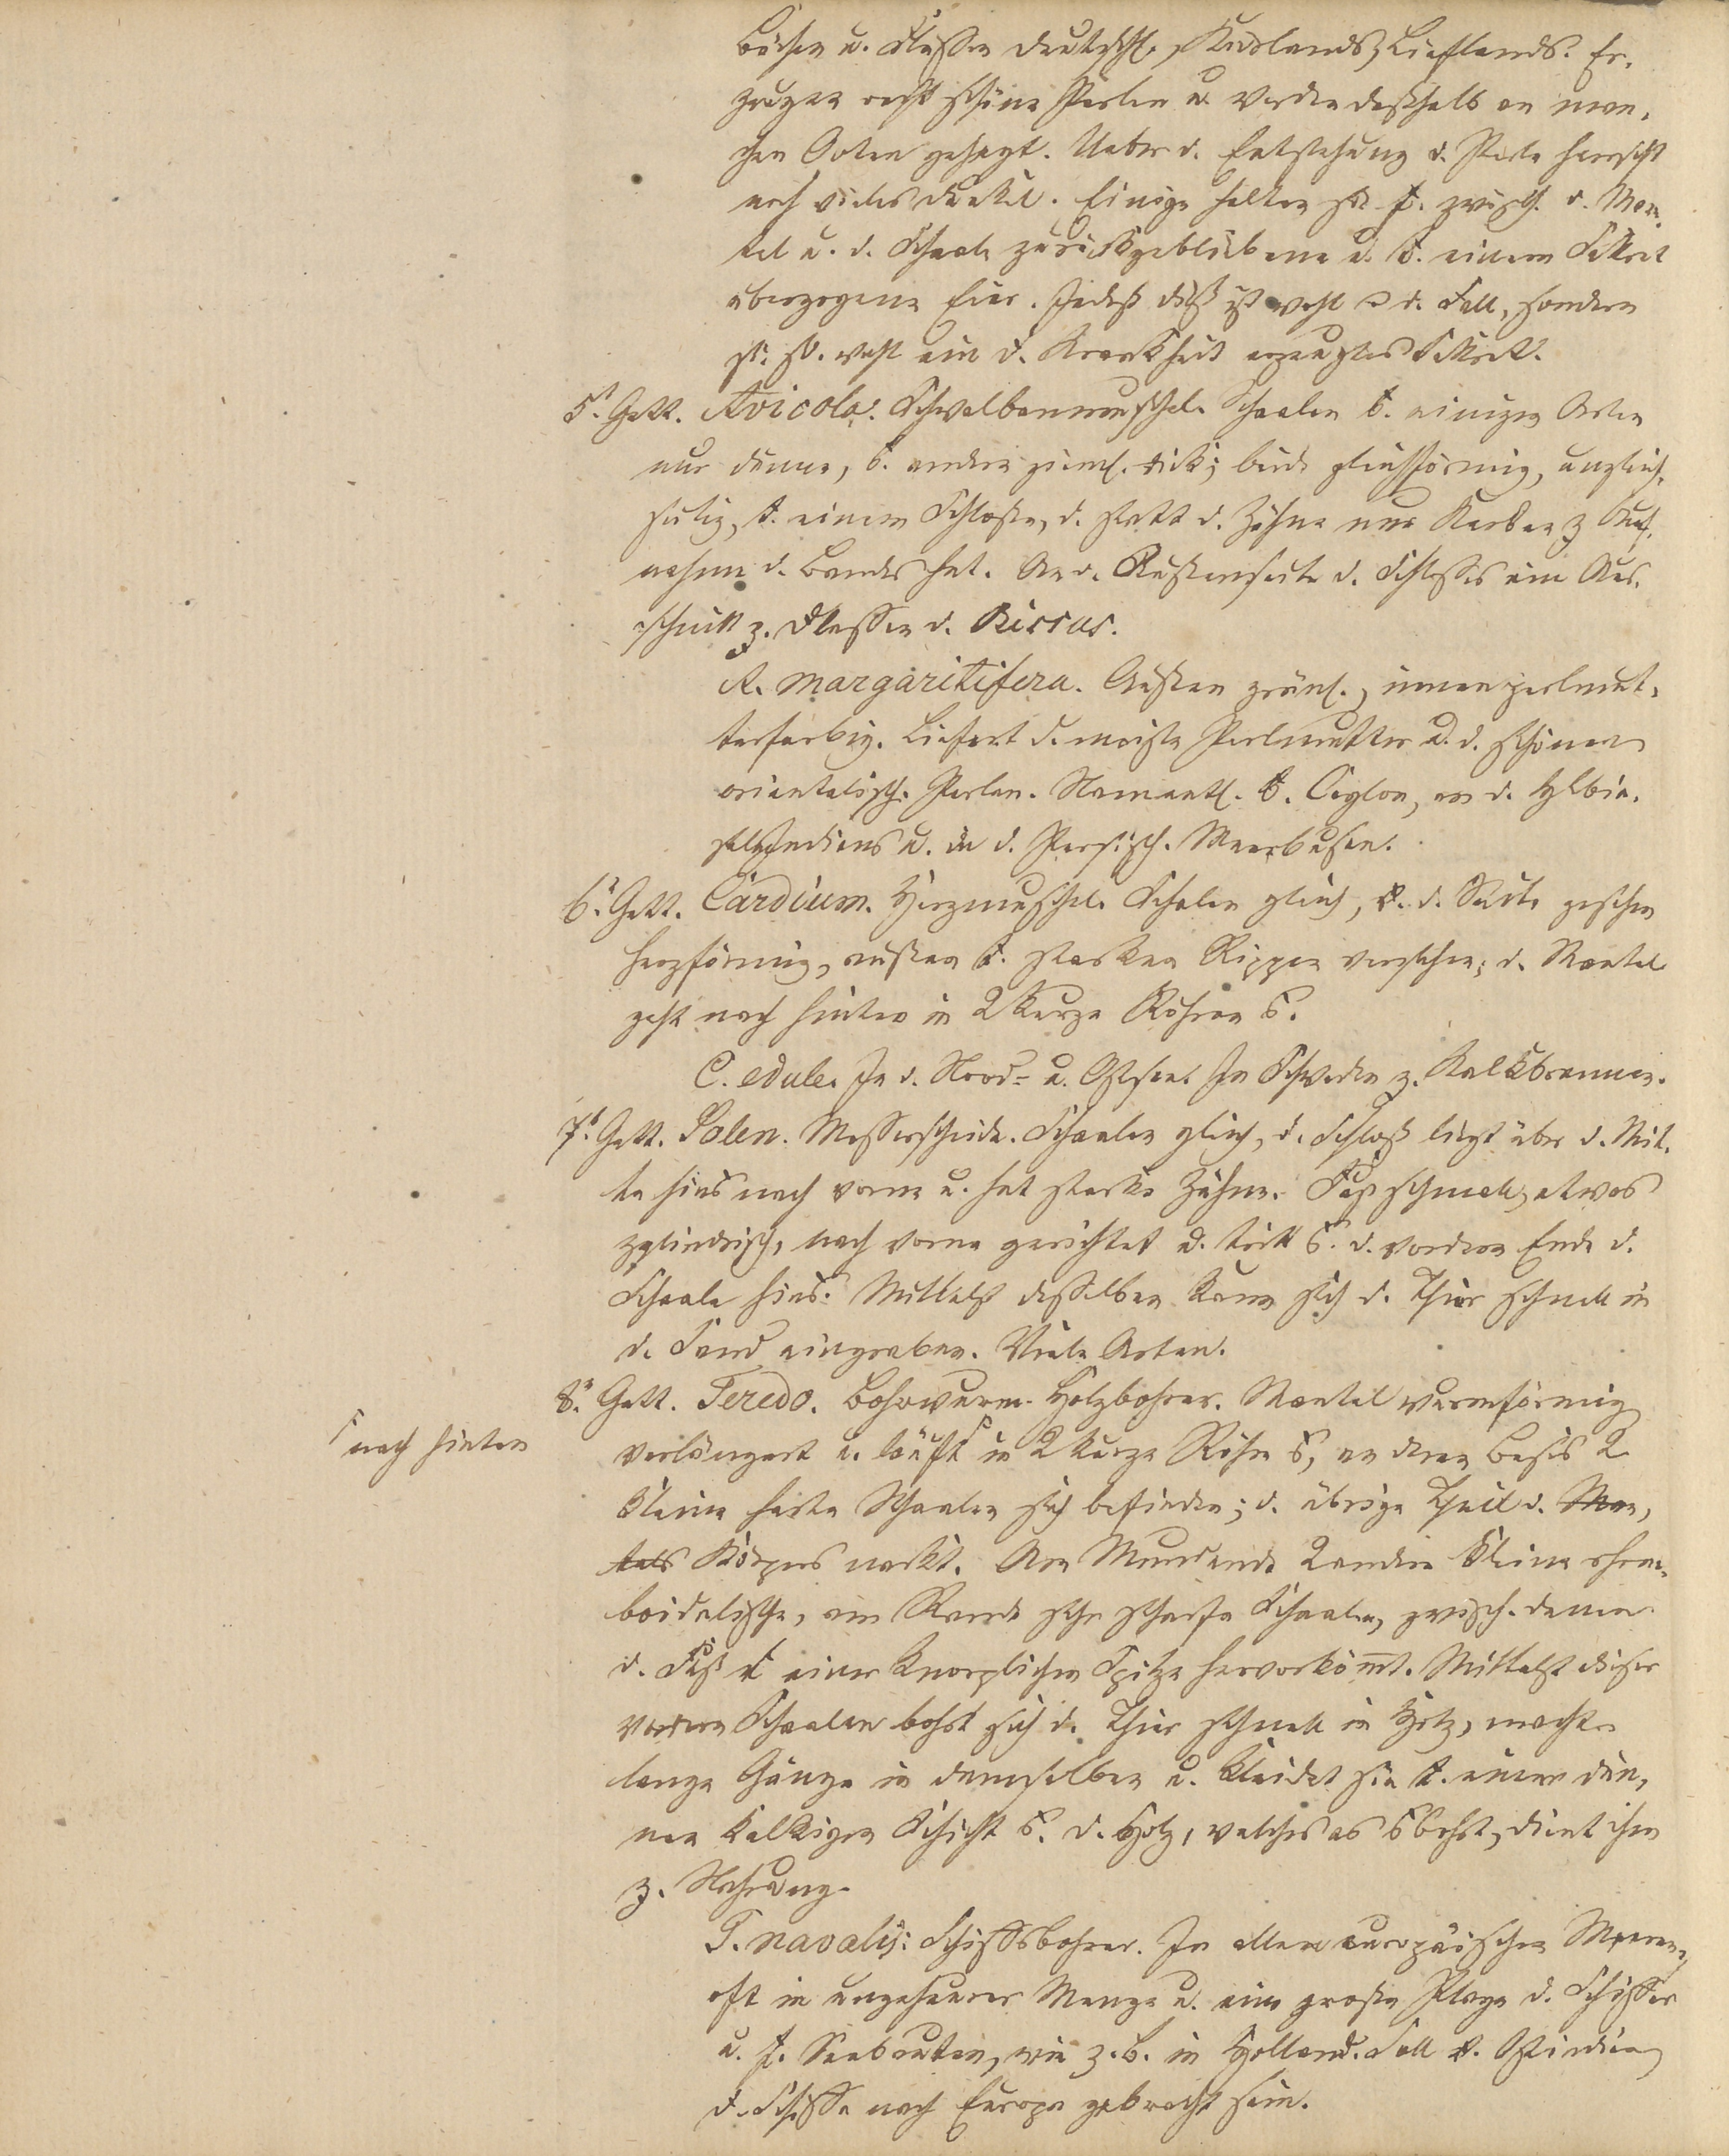 Bächen u. Flüssen Deutschl., Kurlands, Lieflands. Er-
zeugen recht schöne Perlen u. werden deßhalb an man-
chen Orten gehegt. Ueber d. Entstehung d. Perle herrscht
noch vieles Dunkel. Einige halten sie f. zwisch. d. Man-
tel u. d. Schaale zurückgebliebene u. t. einem Sekret
überzogene Eier. Jedoch dieß ist wohl d. Fall, sondern
wohl ein d. Krankheit erzeugtes Sekret.
5t. Gatt. Avicola. Schwalbenmuschel. Schaalen b. einigen Arten
nur dünne, b. andern zieml. dick; beide gleichförmig, ungleich-
seitig, t. einem Schlosse, d. statt d. Zähne nur Kerben z Auf-
nahme d. Bandes hat. An d. Rückenseite d. Schlosses ein Aus-
schnitt z. d. Bissus.
A. margaritifera. Außen grünl., innen perlmut-
terfarbig. Liefert d. meiste Perlmutter u. d. schönen
orientalisch. Perlen. Namentl. b. Ceylon, an d. Hlbin-
sel Indiens u. in d. Persisch. Meerbusen.
6t. Gatt. Cardium. Herzmuschel. Schalen gleich, v. d. Seite gesehen
herzförmig, außen t. starken Rippen versehen; d. Mantel
geht nach hinten in 2 kurze Röhren s.
C. edule. In d. Nord- u. Ostsee. In Schweden z. Kalkbrennen.
7t. Gatt. Solen. Messerscheide. Schaalen gleich, d. Schloß liegt über d. Mit-
te hins nach vorne u. hat starke Zähne. Fuß schmal, etwas
zylindrisch, nach vorne gerichtet u. tritt s. d. vordern Ende d.
Schaale hins. Mittelst desselben kann sich d. Thier schnell in
d. Sand eingraben. Viele Arten.
8t. Gatt. Teredo. Bohrwurm. Holzbohrer. Mantel wurmförmig
nach hinten
verlängert u. läuft in 2 kurze Röhren s, an deren Basis 2
kleine harte Schaalen sich befinden; d. übrige Theil d. Man-
tels Körpers nackt. Am Mundende 2 andre kleine rhom-
boidalische, am Rande sehr scharfe Schaalen, zwisch. denen
d. Fuß t einer knorplichen Spitze hervorkömt. Mittelst dieser
vordern Schaalen bohrt sich d. Thier schnell in Holz, macht
lange Gänge in demselben u. kleidet sie t. einer dün-
nen kalkigen Schicht s. d. Holz, welches es sbohrt, dient ihm
z. Nahrung.
T. navalis: Schiffsbohrer. In allen europäischen Meeren,
oft in ungeheurer Menge u. eine große Plage d. Schiffer
u. f. Seebauten, wie z. B. in Holland. Soll v. Ostindien
d. Schiffe nach Europa gebracht sein.